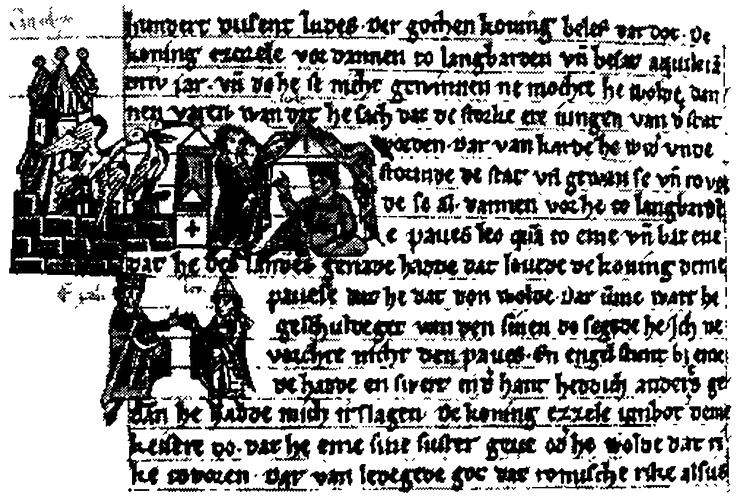 hundert dusent ludes. der gothen koning belef dar dot. De
koning ezzele vor dannen to langbarden vn̄ besat aquileiā
driv iar. vn̄ do he se nicht gewinnen ne mochte he wolde dan
nen varen. wan dat he sach dat de storke ere iungen van d' stat
vorden. dar van karde he wid' vnde
stormde de stat vn̄ gewan se vn̄
de se al. dannen vor he to langbarde
e paues leo quā to eme vn̄ bat eme
dat he des landes genade hadde dat louede de koning deme
pauese dat he dat don wolde. Dar ūme wart he
geschuldeget van den sinen do segede he. Ich ne
vorchte nicht den paues. En engel stunt bi eme
de hadde en swert in d' hant hedde ich anders ge
dan he hadde mich irslagen. De koning ezzele inbot deme
keisere do. dat he eme sine suster geue od' he wolde dat ri
ke tovoren. Dar van ledegede got dat romische rike alsus